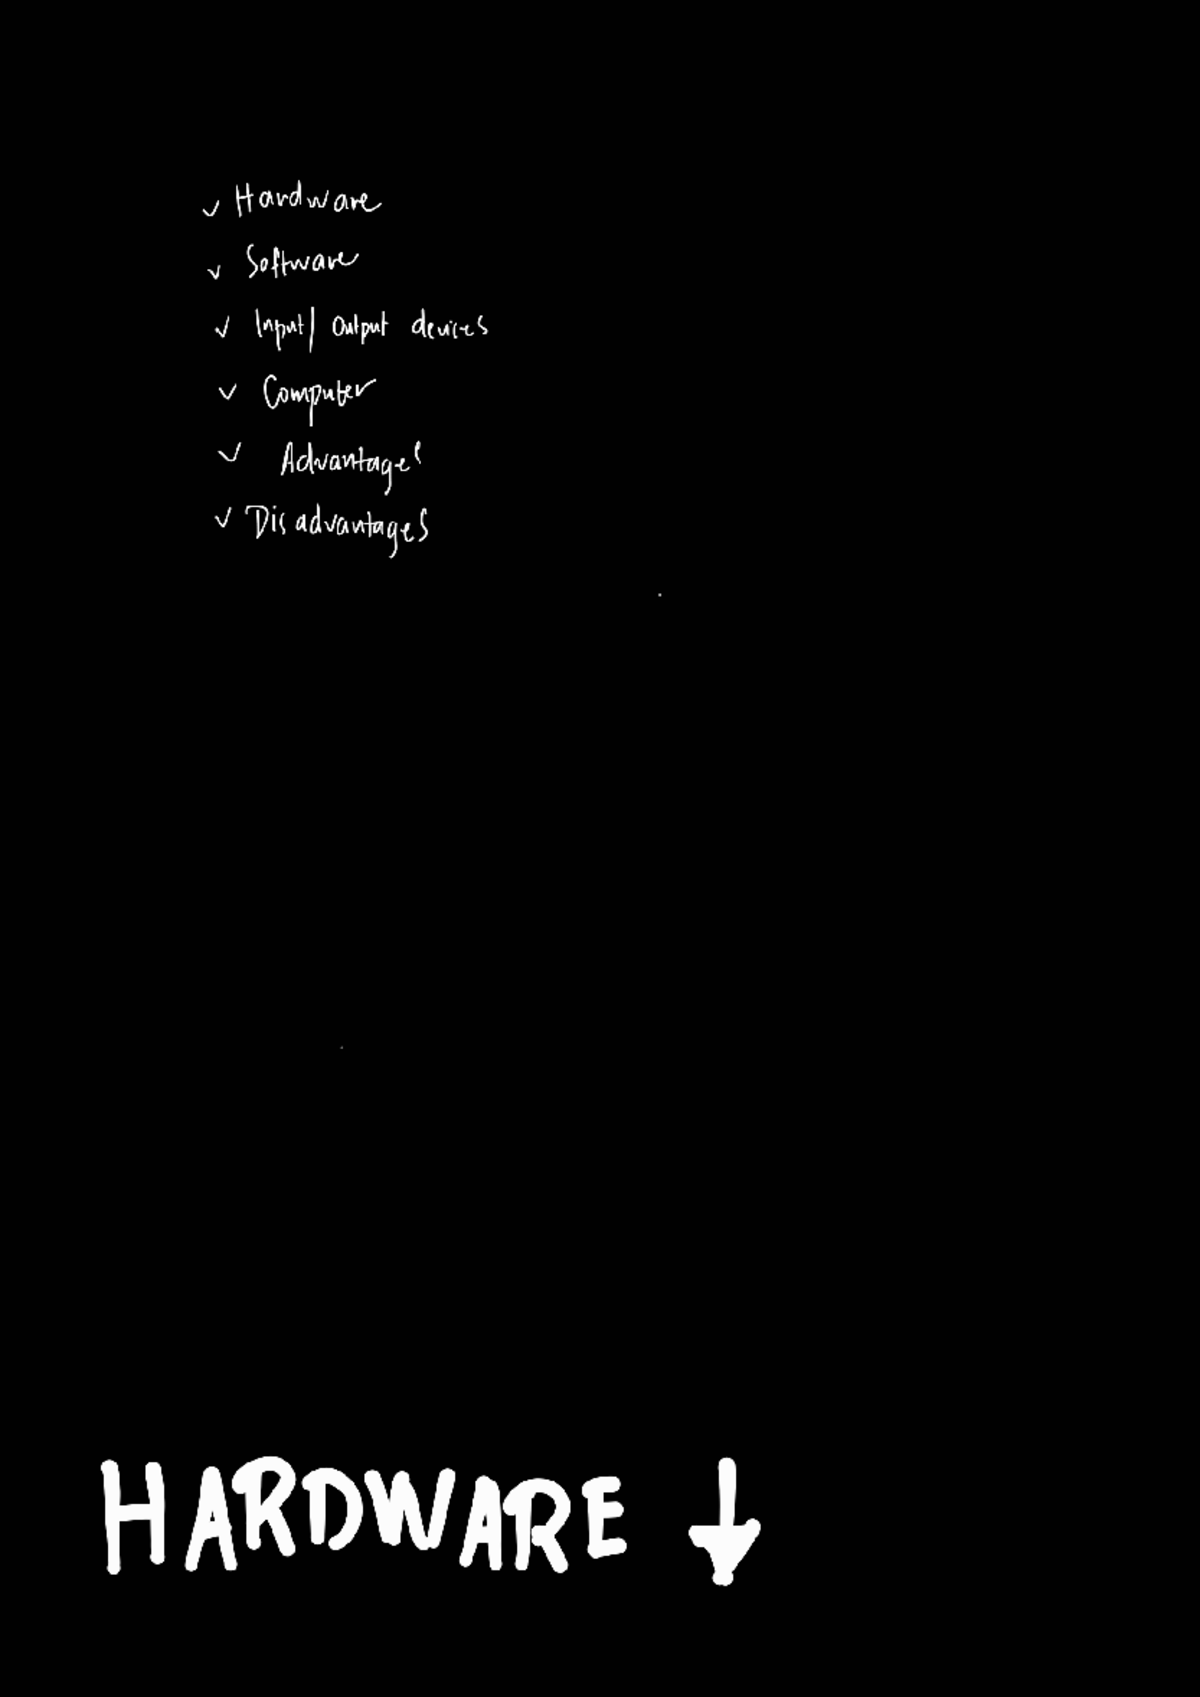 ✓ Hardware
✓ Software
✓ Input/ Output devices
✓ Computer
✓ Advantages
✓ Disadvantages
HARDWARE ↓